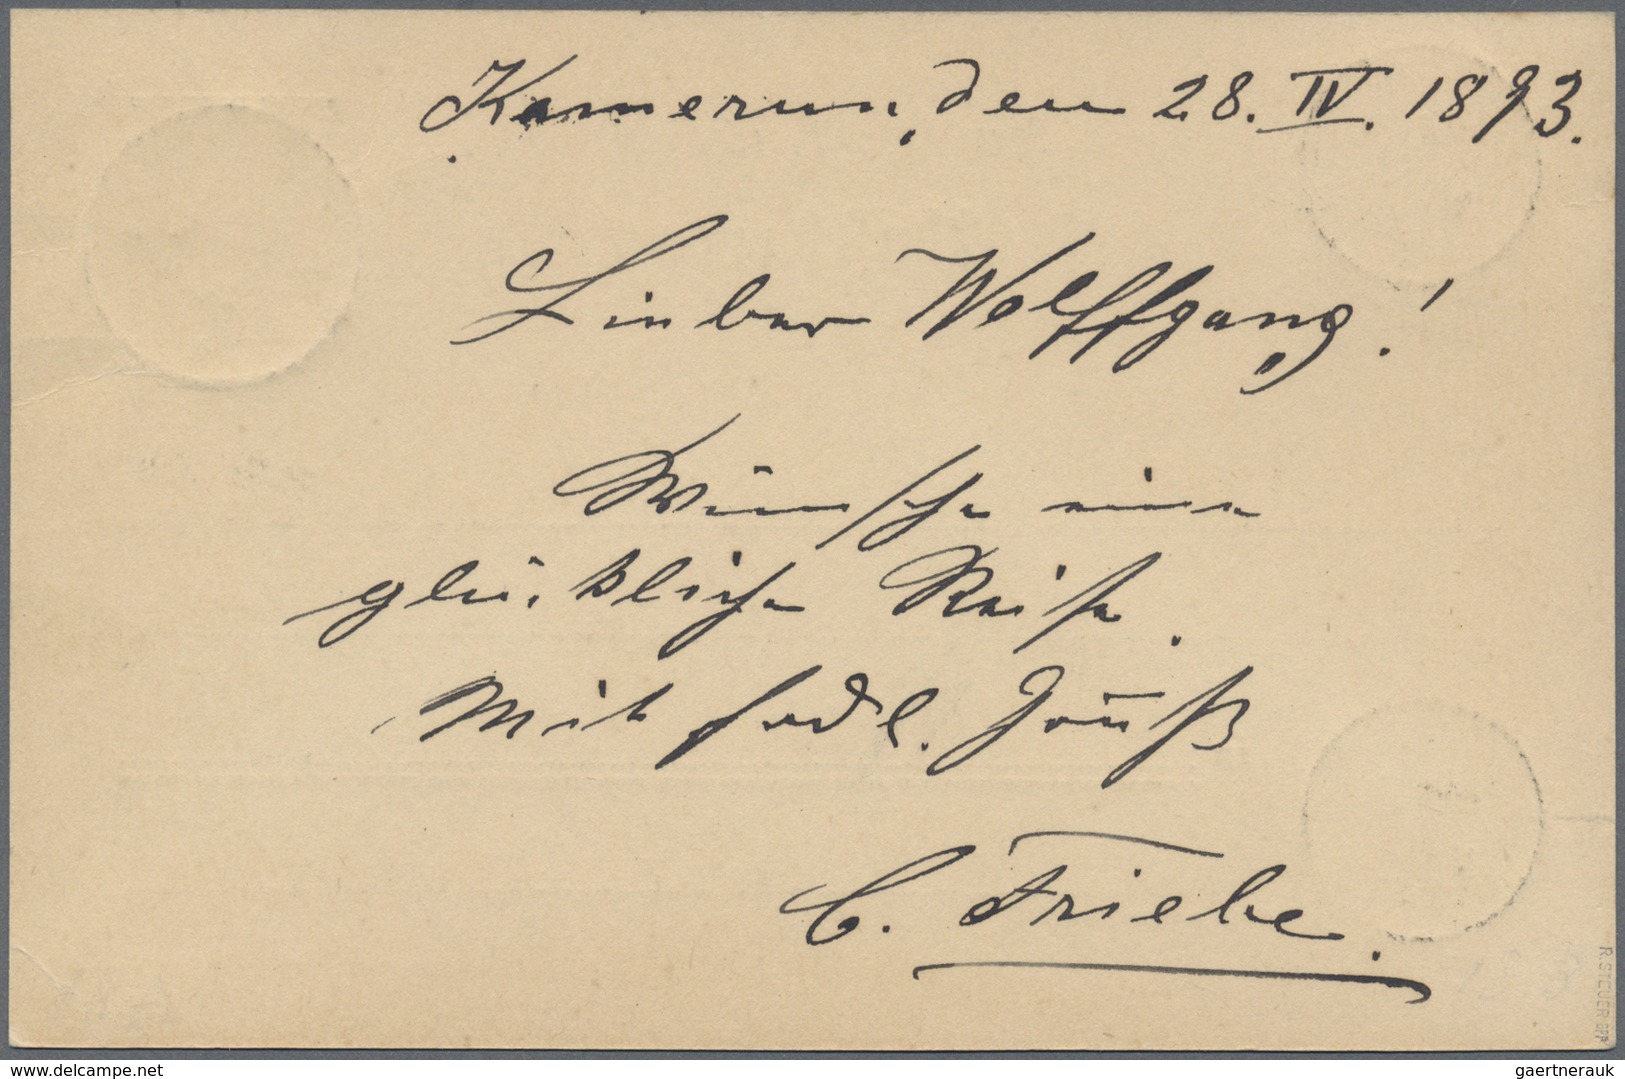 Kamerun, den 28. IV. 1893.
Lieber Wolffgang!
Wünsche eine
glückliche Reise.
Mit frdl. Gruß
C. Friebe.
R.STEUER BPP
delcampe.net
gaertnerauk